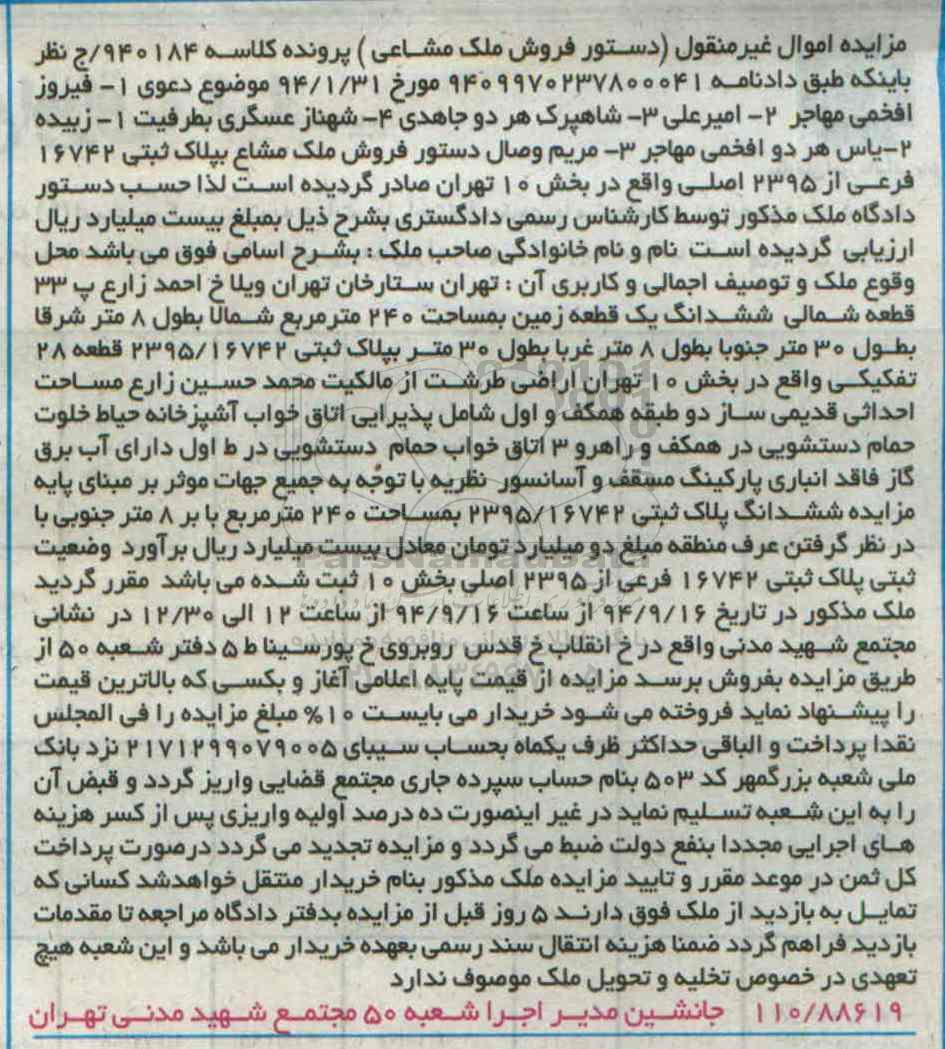 مزایده اموال غیرمنقول (دستور فروش ملک مشاعی ) پرونده کلاسه ۹۴۰۱۸۴/ج نظر
باینکه طبق دادنامه ۹۴۰۹۹۷۰۲۳۷۸۰۰۰۴۱ مورخ ۹۴/۱/۳۱ موضوع دعوی ۱- فیروز
افخمی مهاجر ۲- امیرعلی ۳- شاهپرک هر دو جاهدی ۴- شهناز عسگری بطرفیت ۱- زبیده
۲-یاس هر دو افخمی مهاجر ۳- مریم وصال دستور فروش ملک مشاع بپلاک ثبتی ۱۶۷۴۲
فرعی از ۲۳۹۵ اصلی واقع در بخش ۱۰ تهران صادر گردیده است لذا حسب دستور
دادگاه ملک مذکور توسط کارشناس رسمی دادگستری بشرح ذیل بمبلغ بیست میلیارد ریال
ارزیابی گردیده است نام و نام خانوادگی صاحب ملک : بشرح اسامی فوق می باشد محل
وقوع ملک و توصیف اجمالی و کاربری آن : تهران ستارخان تهران ویلا خ احمد زارع پ ۳۳
قطعه شمالی ششدانگ یک قطعه زمین بمساحت ۲۴۰ مترمربع شمالا بطول ۸ متر شرقا
بطول ۳۰ متر جنوبا بطول ۸ متر غربا بطول ۳۰ متر بپلاک ثبتی ۲۳۹۵/۱۶۷۴۲ قطعه ۲۸
تفکیکی واقع در بخش ۱۰ تهران اراضی طرشت از مالکیت محمد حسین زارع مساحت
احداثی قدیمی ساز دو طبقه همکف و اول شامل پذیرایی اتاق خواب آشپزخانه حیاط خلوت
حمام دستشویی در همکف و راهرو ۳ اتاق خواب حمام دستشویی در ط اول دارای آب برق
گاز فاقد انباری پارکینگ مسقف و آسانسور نظریه با توجه به جمیع جهات موثر بر مبنای پایه
مزایده ششدانگ پلاک ثبتی ۲۳۹۵/۱۶۷۴۲ بمساحت ۲۴۰ مترمربع با بر ۸ متر جنوبی با
در نظر گرفتن عرف منطقه مبلغ دو میلیارد تومان معادل بیست میلیارد ریال برآورد وضعیت
ثبتی پلاک ثبتی ۱۶۷۴۲ فرعی از ۲۳۹۵ اصلی بخش ۱۰ ثبت شده می باشد مقرر گردید
ملک مذکور در تاریخ ۹۴/۹/۱۶ از ساعت ۹۴/۹/۱۶ از ساعت ۱۲ الی ۱۲/۳۰ در نشانی
مجتمع شهید مدنی واقع در خ انقلاب خ قدس روبروی خ پورسینا ط ۵ دفتر شعبه ۵۰ از
طریق مزایده بفروش برسد مزایده از قیمت پایه اعلامی آغاز و بکسی که بالاترین قیمت
را پیشنهاد نماید فروخته می شود خریدار می بایست ۱۰% مبلغ مزایده را فی المجلس
نقدا پرداخت و الباقی حداکثر ظرف یکماه بحساب سیبای ۲۱۷۱۲۹۹۰۷۹۰۰۵ نزد بانک
ملی شعبه بزرگمهر کد ۵۰۳ بنام حساب سپرده جاری مجتمع قضایی واریز گردد و قبض آن
را به این شعبه تسلیم نماید در غیر اینصورت ده درصد اولیه واریزی پس از کسر هزینه
های اجرایی مجددا بنفع دولت ضبط می گردد و مزایده تجدید می گردد درصورت پرداخت
کل ثمن در موعد مقرر و تایید مزایده ملک مذکور بنام خریدار منتقل خواهدشد کسانی که
تمایل به بازدید از ملک فوق دارند ۵ روز قبل از مزایده بدفتر دادگاه مراجعه تا مقدمات
بازدید فراهم گردد ضمنا هزینه انتقال سند رسمی بعهده خریدار می باشد و این شعبه هیچ
تعهدی در خصوص تخلیه و تحویل ملک موصوف ندارد
۱۱۰/۸۸۶۱۹ جانشین مدیر اجرا شعبه ۵۰ مجتمع شهید مدنی تهران